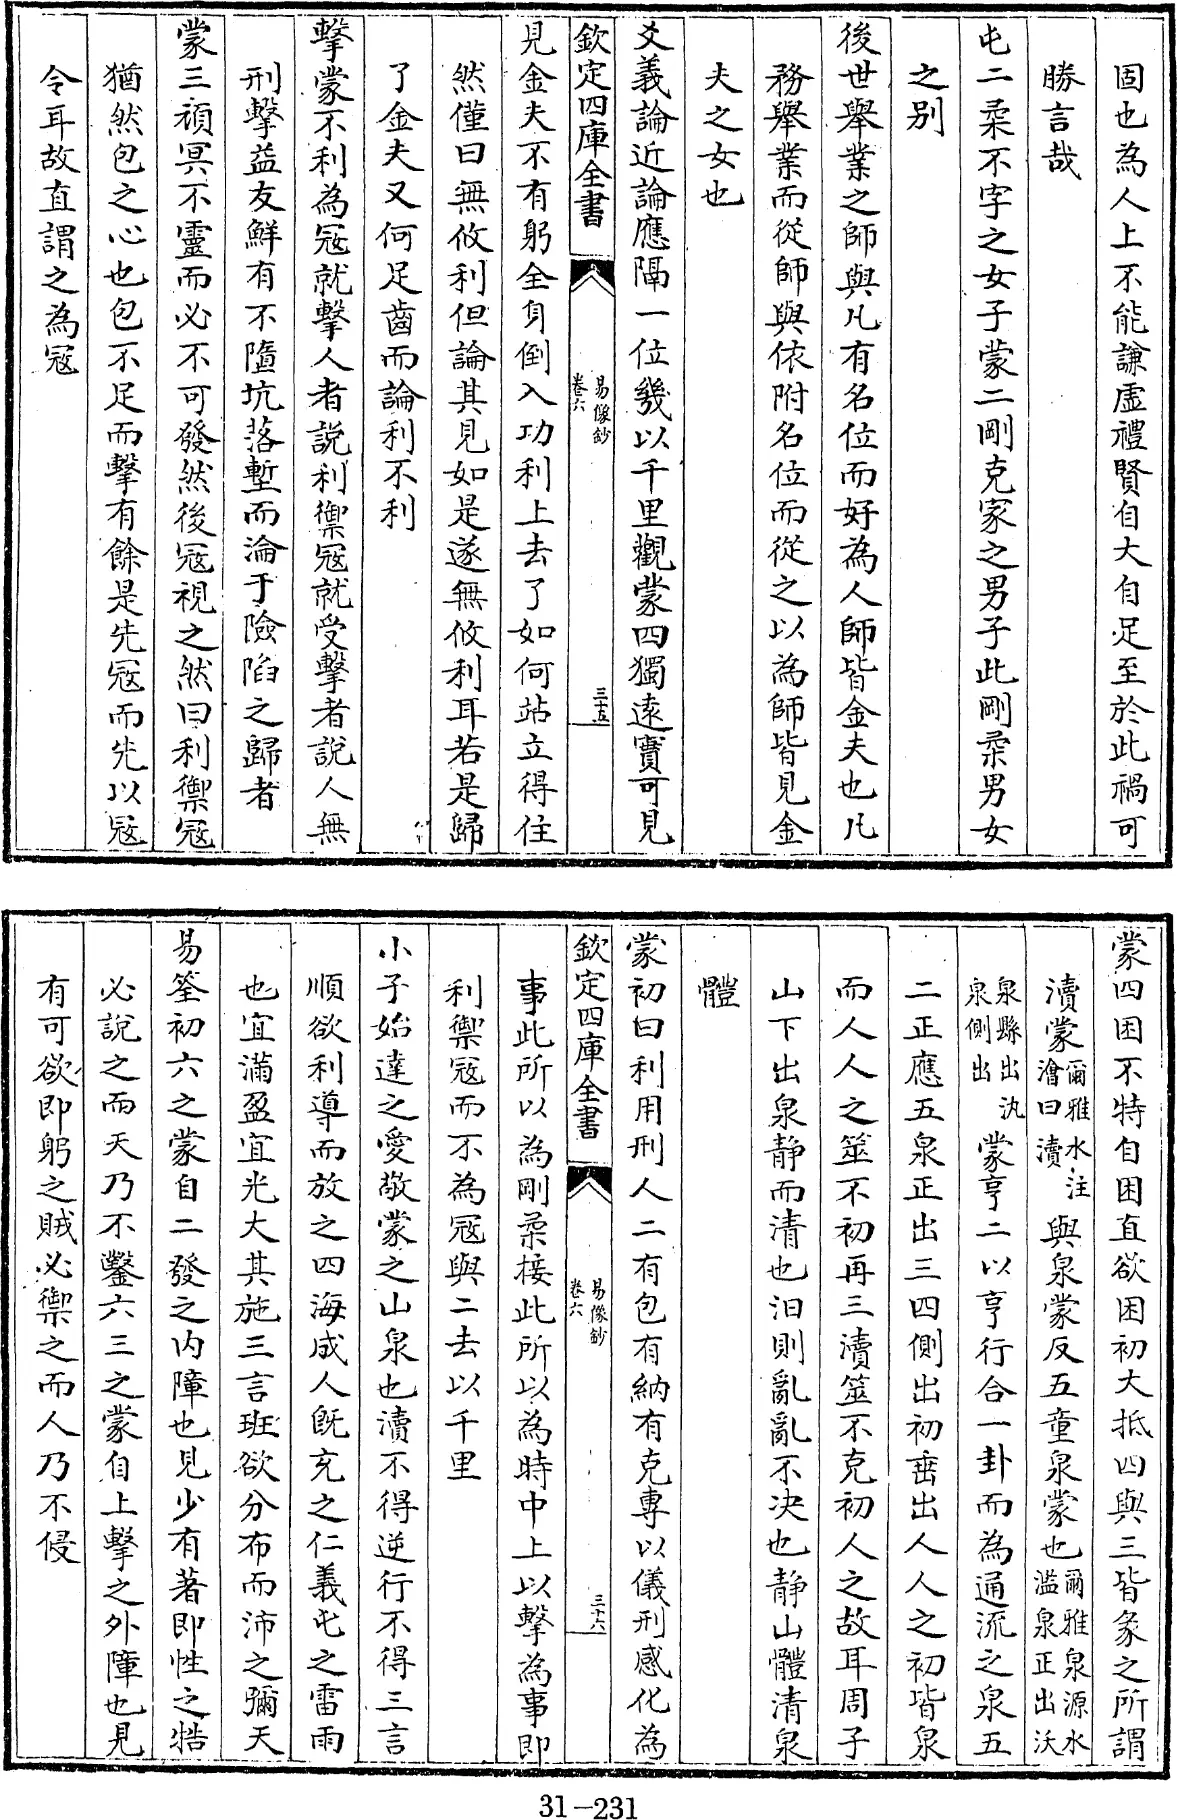 固也為人上不能謙虛禮賢自大自足至於此禍可
勝言哉
屯二柔不字之女子蒙二剛克家之男子此剛柔男女
之別
後世舉業之師與凡有名位而好為人師皆金夫也凡
務舉業而從師與依附名位而從之以為師皆見金
夫之女也
爻義論近論應隔一位幾以千里觀蒙四獨遠實可見
欽定四庫全書
易像鈔
卷六
三十五
見金夫不有躬全身倒入功利上去了如何站立得住
然僅曰無攸利但論其見如是遂無攸利耳若是歸
了金夫又何足齒而論利不利
擊蒙不利為冦就擊人者說利禦冦就受擊者說人無
刑擊益友鮮有不墮坑落塹而淪于險陷之歸者
蒙三頑冥不靈而必不可發然後冦視之然曰利禦冦
猶然包之心也包不足而擊有餘是先冦而先以冦
令耳故直謂之為冦
蒙四困不特自困直欲困初大抵四與三皆彖之所謂
瀆蒙爾雅水注
澮曰瀆
與泉蒙反五童泉蒙也爾雅泉源水
濫泉正出沃
泉縣出氿
泉側出
蒙亨二以亨行合一卦而為通流之泉五
二正應五泉正出三四側出初垂出人人之初皆泉
而人人之筮不初再三瀆筮不克初人之故耳周子
山下出泉静而清也汩則亂亂不决也静山體清泉
體
蒙初曰利用刑人二有包有納有克專以儀刑感化為
欽定四庫全書
易像鈔
卷六
三十六
事此所以為剛柔接此所以為時中上以擊為事即
利禦冦而不為冦與二去以千里
小子始達之愛敬蒙之山泉也瀆不得逆行不得三言
順欲利導而放之四海成人既充之仁義屯之雷雨
也宜滿盈宜光大其施三言班欲分布而沛之彌天
易筌初六之蒙自二發之内障也見少有著即性之牿
必說之而天乃不鑿六三之蒙自上擊之外障也見
有可欲即躬之賊必禦之而人乃不侵
31-231